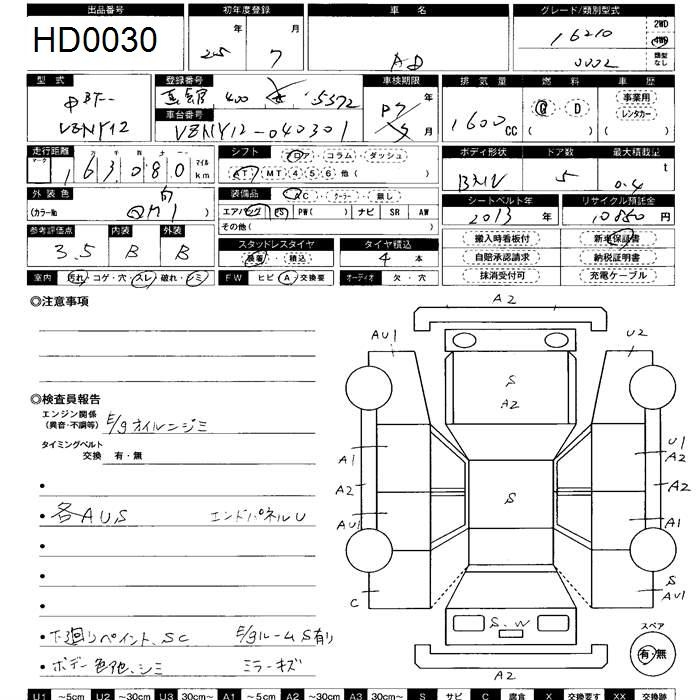 出品番号 初年度登録 車名 グレード/類別型式
HD0030 25年 7月 AD 16210 0002 2WD 4WD 類型なし
型式 登録番号 車検期限 排気量 燃料 車歴
VZNY12 400 5572 R7年 5月 1600cc G・D ( ) 事業用 レンタカー ( )
車台番号
VZNY12-040301
走行距離 シフト ボディ形状 ドア数 最大積載量
マーク 十 万 千 百 十 一 マイル km
163,080
フロア・コラム・ダッシュ
AT・MT 4 5 6 他 ( )
BMV 5 0.4 t
外装色 装備品 シートベルト年 リサイクル預託金
(カラーNo QM1 ) AC・クーラー・無し
エアバッグ PS PW( ) ナビ SR AW
2013年 10850円
その他( )
参考評価点 内装 外装 スタッドレスタイヤ タイヤ積込 搬入時看板付 新車保証書
3.5 B B 装着・積込 4本 自賠承認請求 納税証明書
室内 汚れ・コゲ・穴・スレ・破れ・シミ FW ヒビ・A・交換要 オーディオ 欠・穴 抹消受付可 充電ケーブル
◎注意事項
◎検査員報告
エンジン関係
(異音・不調等) E/gオイルニジミ
タイミングベルト
交換 有・無
・
・各AU,S エンドパネルU
・
・
・下廻りペイント、SC E/gルームS有り
・ボデー色他、シミ ミラーキズ
A2
AU1 U2
S
A2
A1 U1
A2
A2 S A2
AU1 A1
C S
AU1
S.W
A2
スペア
有・無
U1 ~5cm U2 ~30cm U3 30cm~ A1 ~5cm A2 ~30cm A3 30cm~ S サビ C 腐食 X 交換要す XX 交換跡